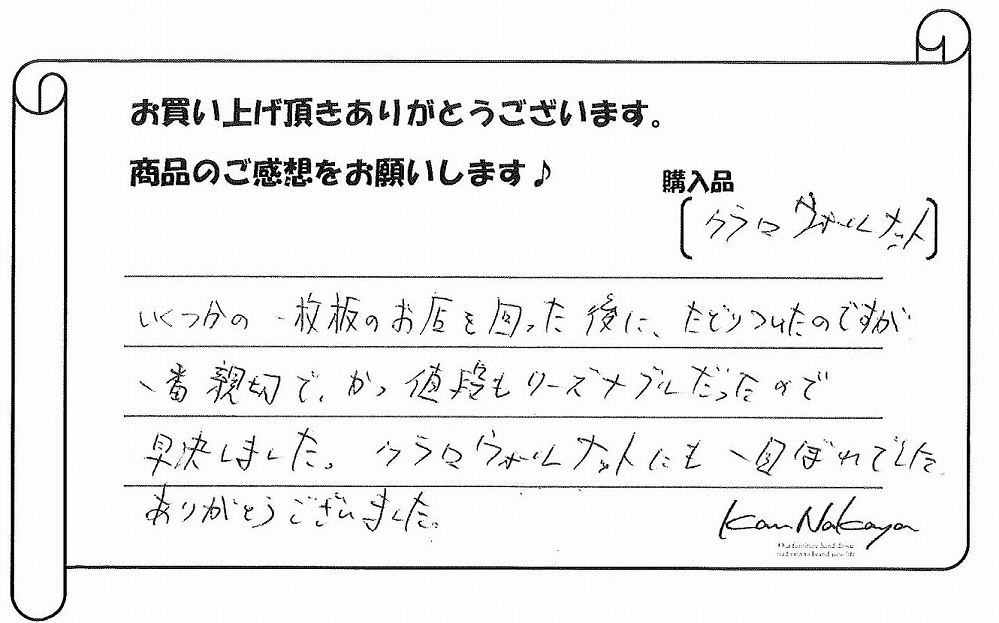 お買い上げ頂きありがとうございます。
商品のご感想をお願いします♪
購入品
クラロウォールナット
いくつかの一枚板のお店を回った後に、たどりついたのですが
一番親切で、かつ値段もリーズナブルだったので
早決しました。クラロウォールナットにも一目ぼれでした
ありがとうございました。
Kan Nakaya